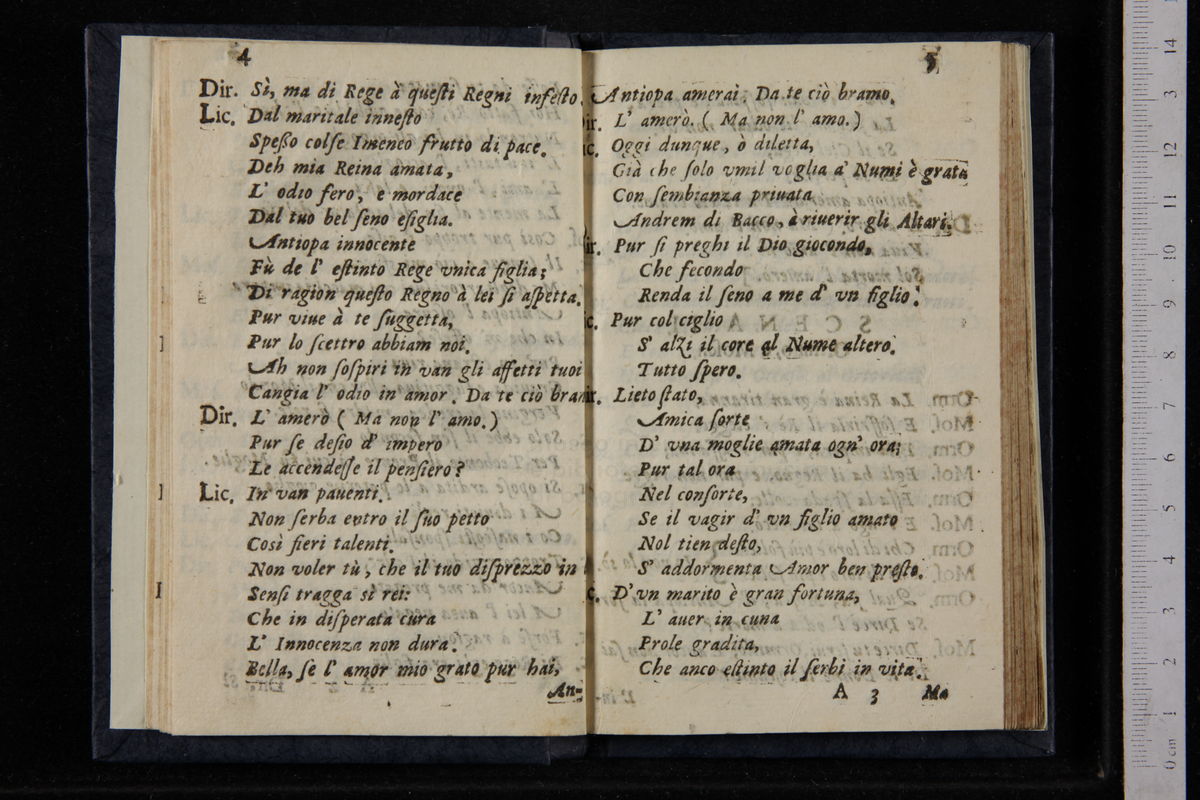 4
Dir. Sì, ma di Rege à questi Regni infesto.
Lic. Dal maritale innesto
Spesso colse Imeneo frutto di pace.
Deh mia Reina amata,
L' odio fero, e mordace
Dal tuo bel seno esiglia.
Antiopa innocente
Fù de l' estinto Rege vnica figlia;
Di ragion questo Regno à lei si aspetta.
Pur viue à te suggetta,
Pur lo scettro abbiam noi.
Ah non sospiri in van gli affetti tuoi
Cangia l' odio in amor. Da te ciò bram
Dir. L' amerò ( Ma non l' amo.)
Pur se desio d' impero
Le accendesse il pensiero?
Lic. In van pauenti.
Non serba entro il suo petto
Così fieri talenti.
Non voler tù, che il tuo disprezzo in
Sensi tragga sì rei:
Che in disperata cura
L' Innocenza non dura.
Bella, se l' amor mio grato pur hai,
An-
5
Antiopa amerai. Da te ciò bramo.
ir. L' amerò. ( Ma non l' amo.)
ic. Oggi dunque, ò diletta,
Già che solo vmil voglia a' Numi è grata
Con sembianza priuata
Andrem di Bacco, à riuerir gli Altari.
ir. Pur si preghi il Dio giocondo,
Che fecondo
Renda il seno a me d' vn figlio.
ic. Pur col ciglio
S' alzi il core al Nume altero.
Tutto spero.
ir. Lieto stato,
Amica sorte
D' vna moglie amata ogn' ora;
Pur tal ora
Nel consorte,
Se il vagir d' vn figlio amato
Nol tien desto,
S' addormenta Amor ben presto.
c. D' vn marito è gran fortuna,
L' auer in cuna
Prole gradita,
Che anco estinto il serbi in vita.
A 3 Ma